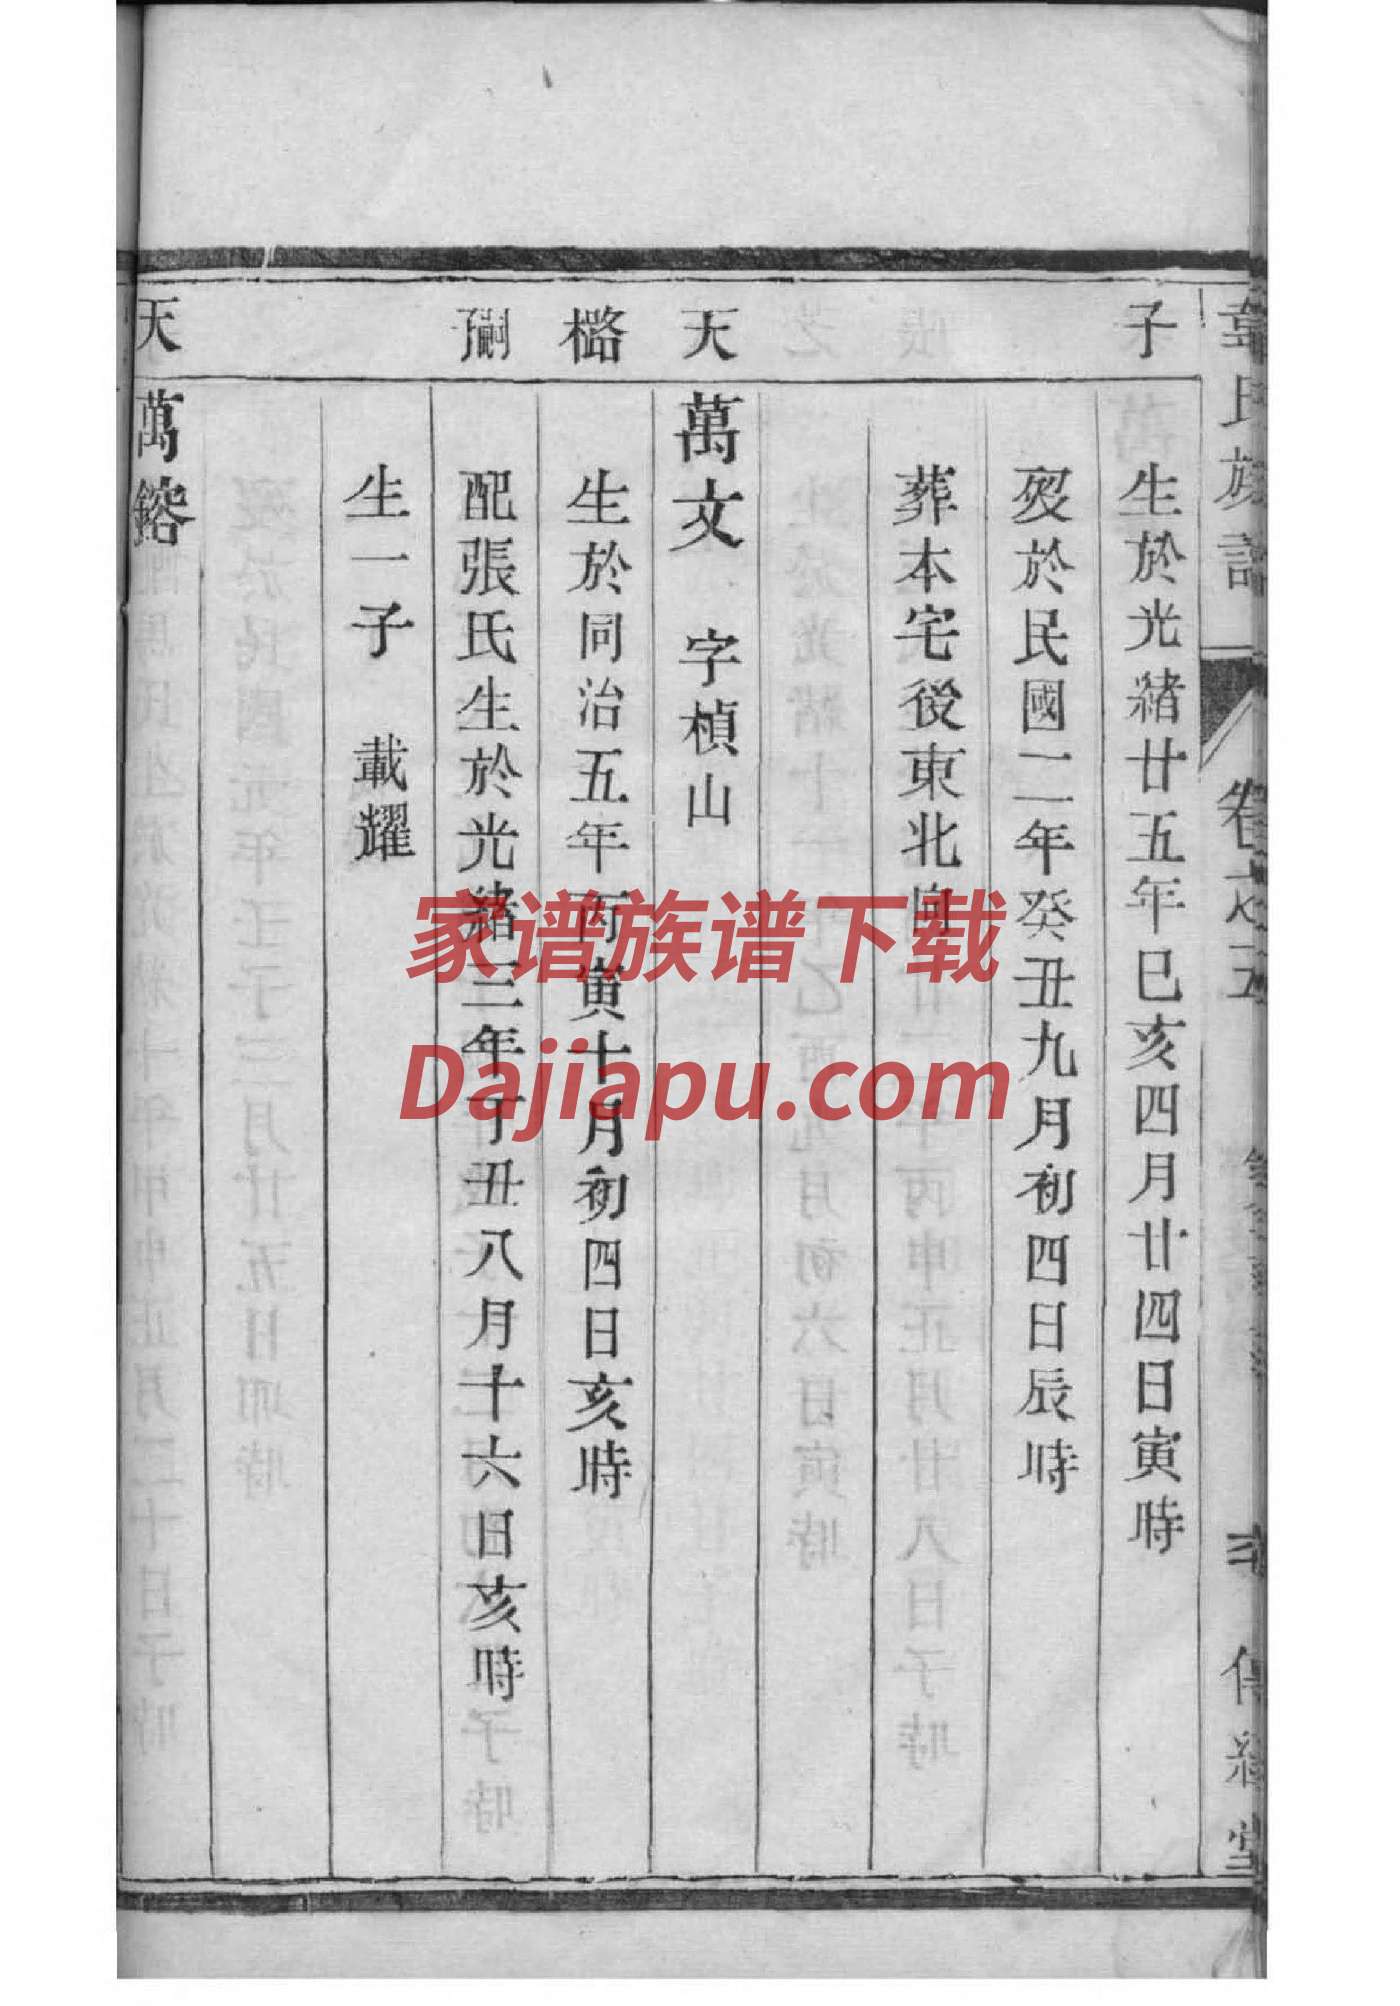 韋氏族譜
子
生於光緒廿五年巳亥四月廿四日寅時
歿於民國二年癸丑九月初四日辰時
葬本宅後東北向
天
萬文 字楨山
樬
生於同治五年丙寅十月初四日亥時
嗣
配張氏生於光緒三年丁丑八月十六日亥時
生一子 載耀
天
萬鎔
家谱族谱下载
Dajiapu.com